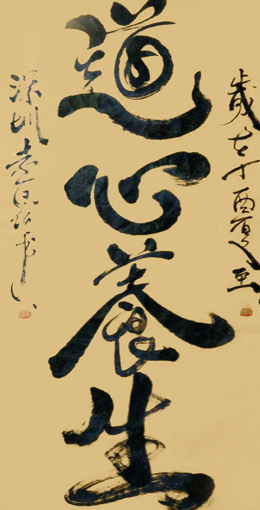 歲在丁酉夏至
道心養生
深圳